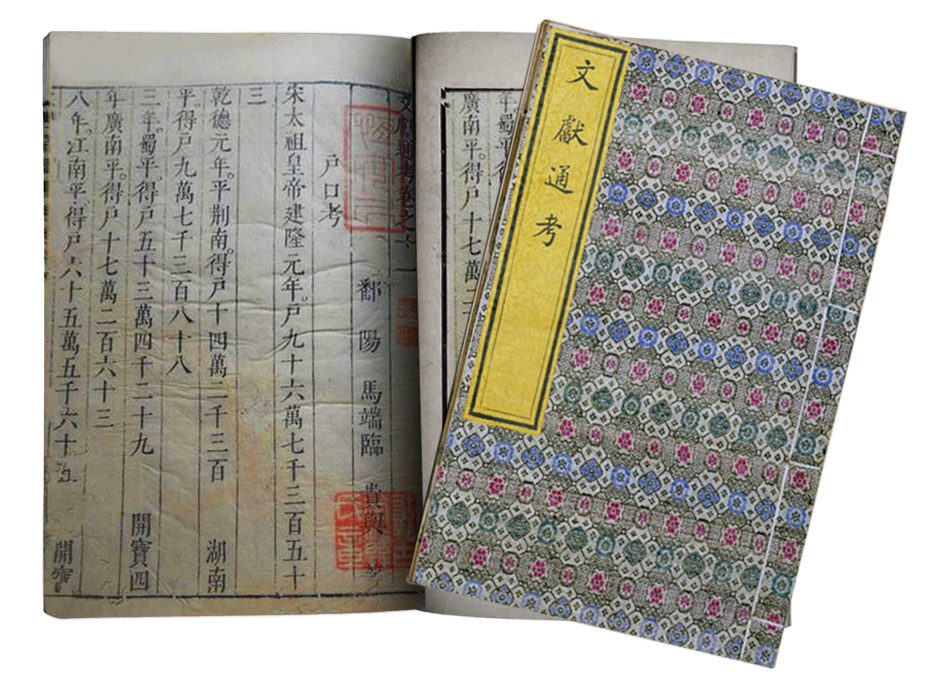 文獻通考
年。蜀平。得
廣南平。得户十七萬二
文獻通考卷之十一
鄱陽馬端臨貴與著
户口考
宋太祖皇帝建隆元年。户九十六萬七千三百五十
三
乾德元年。平荆南。得户十四萬二千三百 湖南
平。得户九萬七千三百八十八
三年。蜀平。得户五十三萬四千二十九 開寶四
年。廣南平。得户十七萬二百六十三
八年。江南平。得户六十五萬五千六十五 開寶